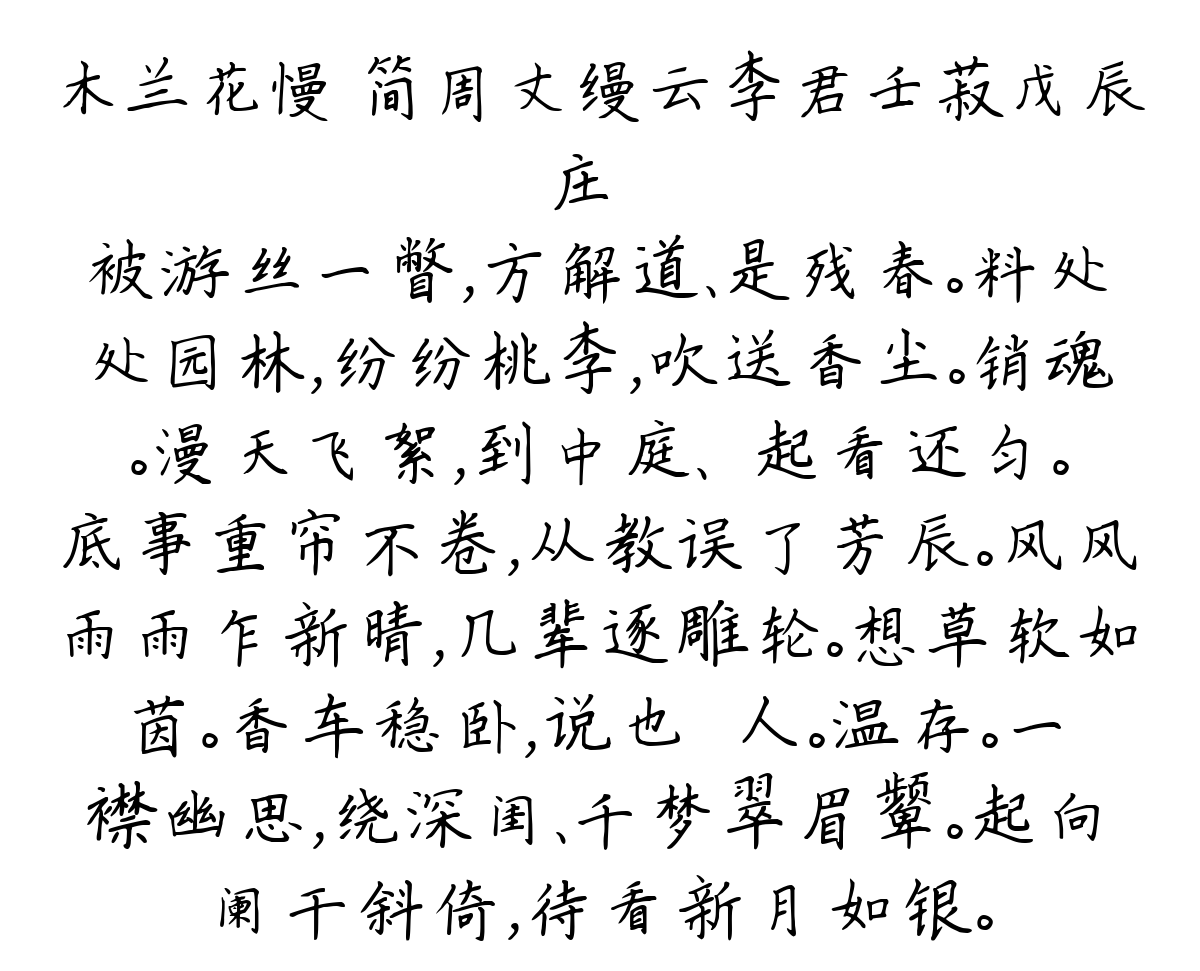 木兰花慢 简周丈缦云李君壬菽戊辰
庄
被游丝一瞥,方解道、是残春。料处
处园林,纷纷桃李,吹送香尘。销魂
。漫天飞絮,到中庭、起看还匀。
底事重帘不卷,从教误了芳辰。风风
雨雨乍新晴,几辈逐雕轮。想草软如
茵。香车稳卧,说也 人。温存。一
襟幽思,绕深闺、千梦翠眉颦。起向
阑干斜倚,待看新月如银。